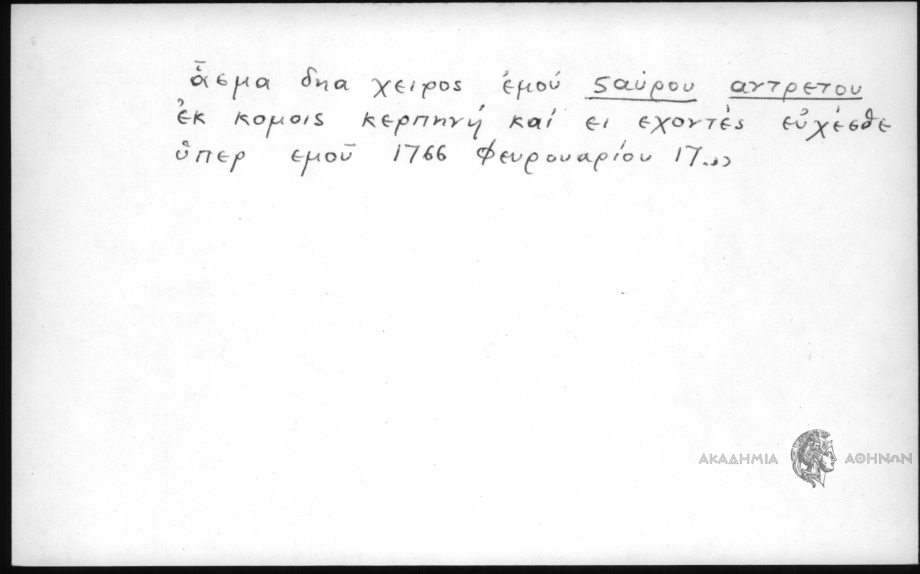 ἆσμα δηα χειρος ἐμού ϛαύρου αντρετου
ἐκ κομοις κερπηνή καί ει εχοντές εὐχέσθε
ὕπερ εμοῦ 1766 Φευρουαρίου 17..,,
ΑΚΑΔΗΜΙΑ ΑΘΗΝΩΝ